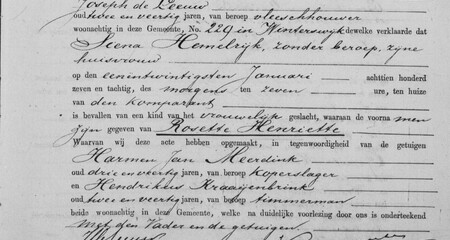 Joseph de Leeuw
oud twee en veertig jaren, van beroep vleeschhouwer
woonachtig in deze Gemeente, No. 229 in Winterswijk dewelke verklaarde dat
Seena Hemelrijk, zonder beroep, zijne
huisvrouw
op den eenentwintigsten Januari achttien honderd
zeven en tachtig, des morgens ten zeven ure, ten huize
van den komparant
is bevallen van een kind van het vrouwelijk geslacht, waaraan de voorna men
zijn gegeven van Rosette Henriette
Waarvan wij deze acte hebben opgemaakt, in tegenwoordigheid van de getuigen
Harmen Jan Meerdink
oud drie en veertig jaren, van beroep koperslager
en Hendrikus Kraaijenbrink
oud twee en veertig jaren, van beroep timmerman
beide woonachtig in deze Gemeente, welke na duidelijke voorlezing door ons is onderteekend
met den Vader en de getuigen.